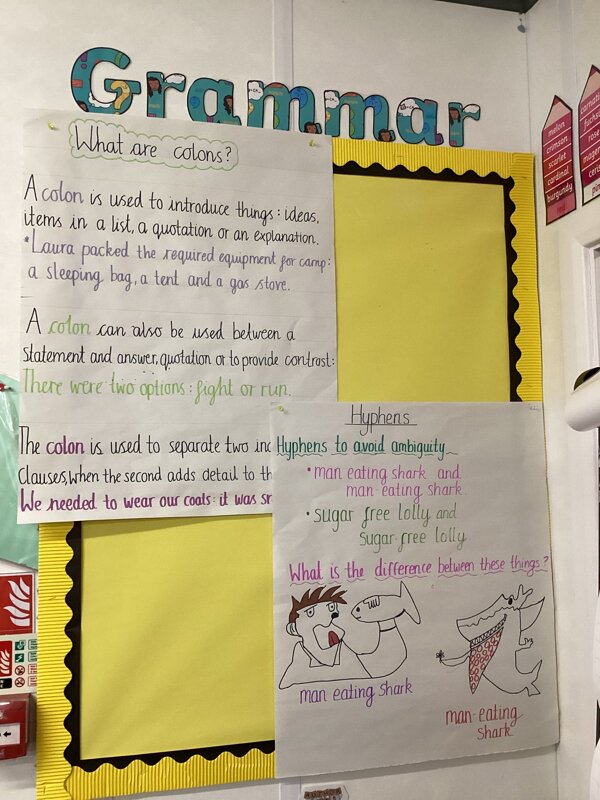 Grammar
What are colons?
A colon is used to introduce things: ideas,
items in a list, a quotation or an explanation.
*Laura packed the required equipment for camp:
a sleeping bag, a tent and a gas stove.
A colon can also be used between a
statement and answer, quotation or to provide contrast:
There were two options: fight or run.
The colon is used to separate two
Clauses, when the second adds detail to
We needed to wear our coats: it was
Hyphens
Hyphens to avoid ambiguity
• man eating shark and
man-eating shark
• sugar free lolly and
Sugar-free lolly
What is the difference between these things?
man eating shark
man-eating
shark
melon
crimson
scarlet
cardinal
burgundy
red